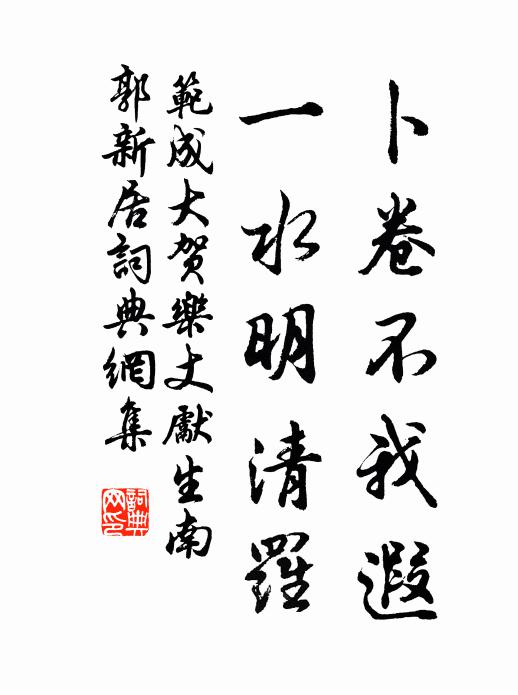 卜卷不我遐
一水明清羅
範成大賀樂丈獻生南
郭新居詞典網集
詞典网印